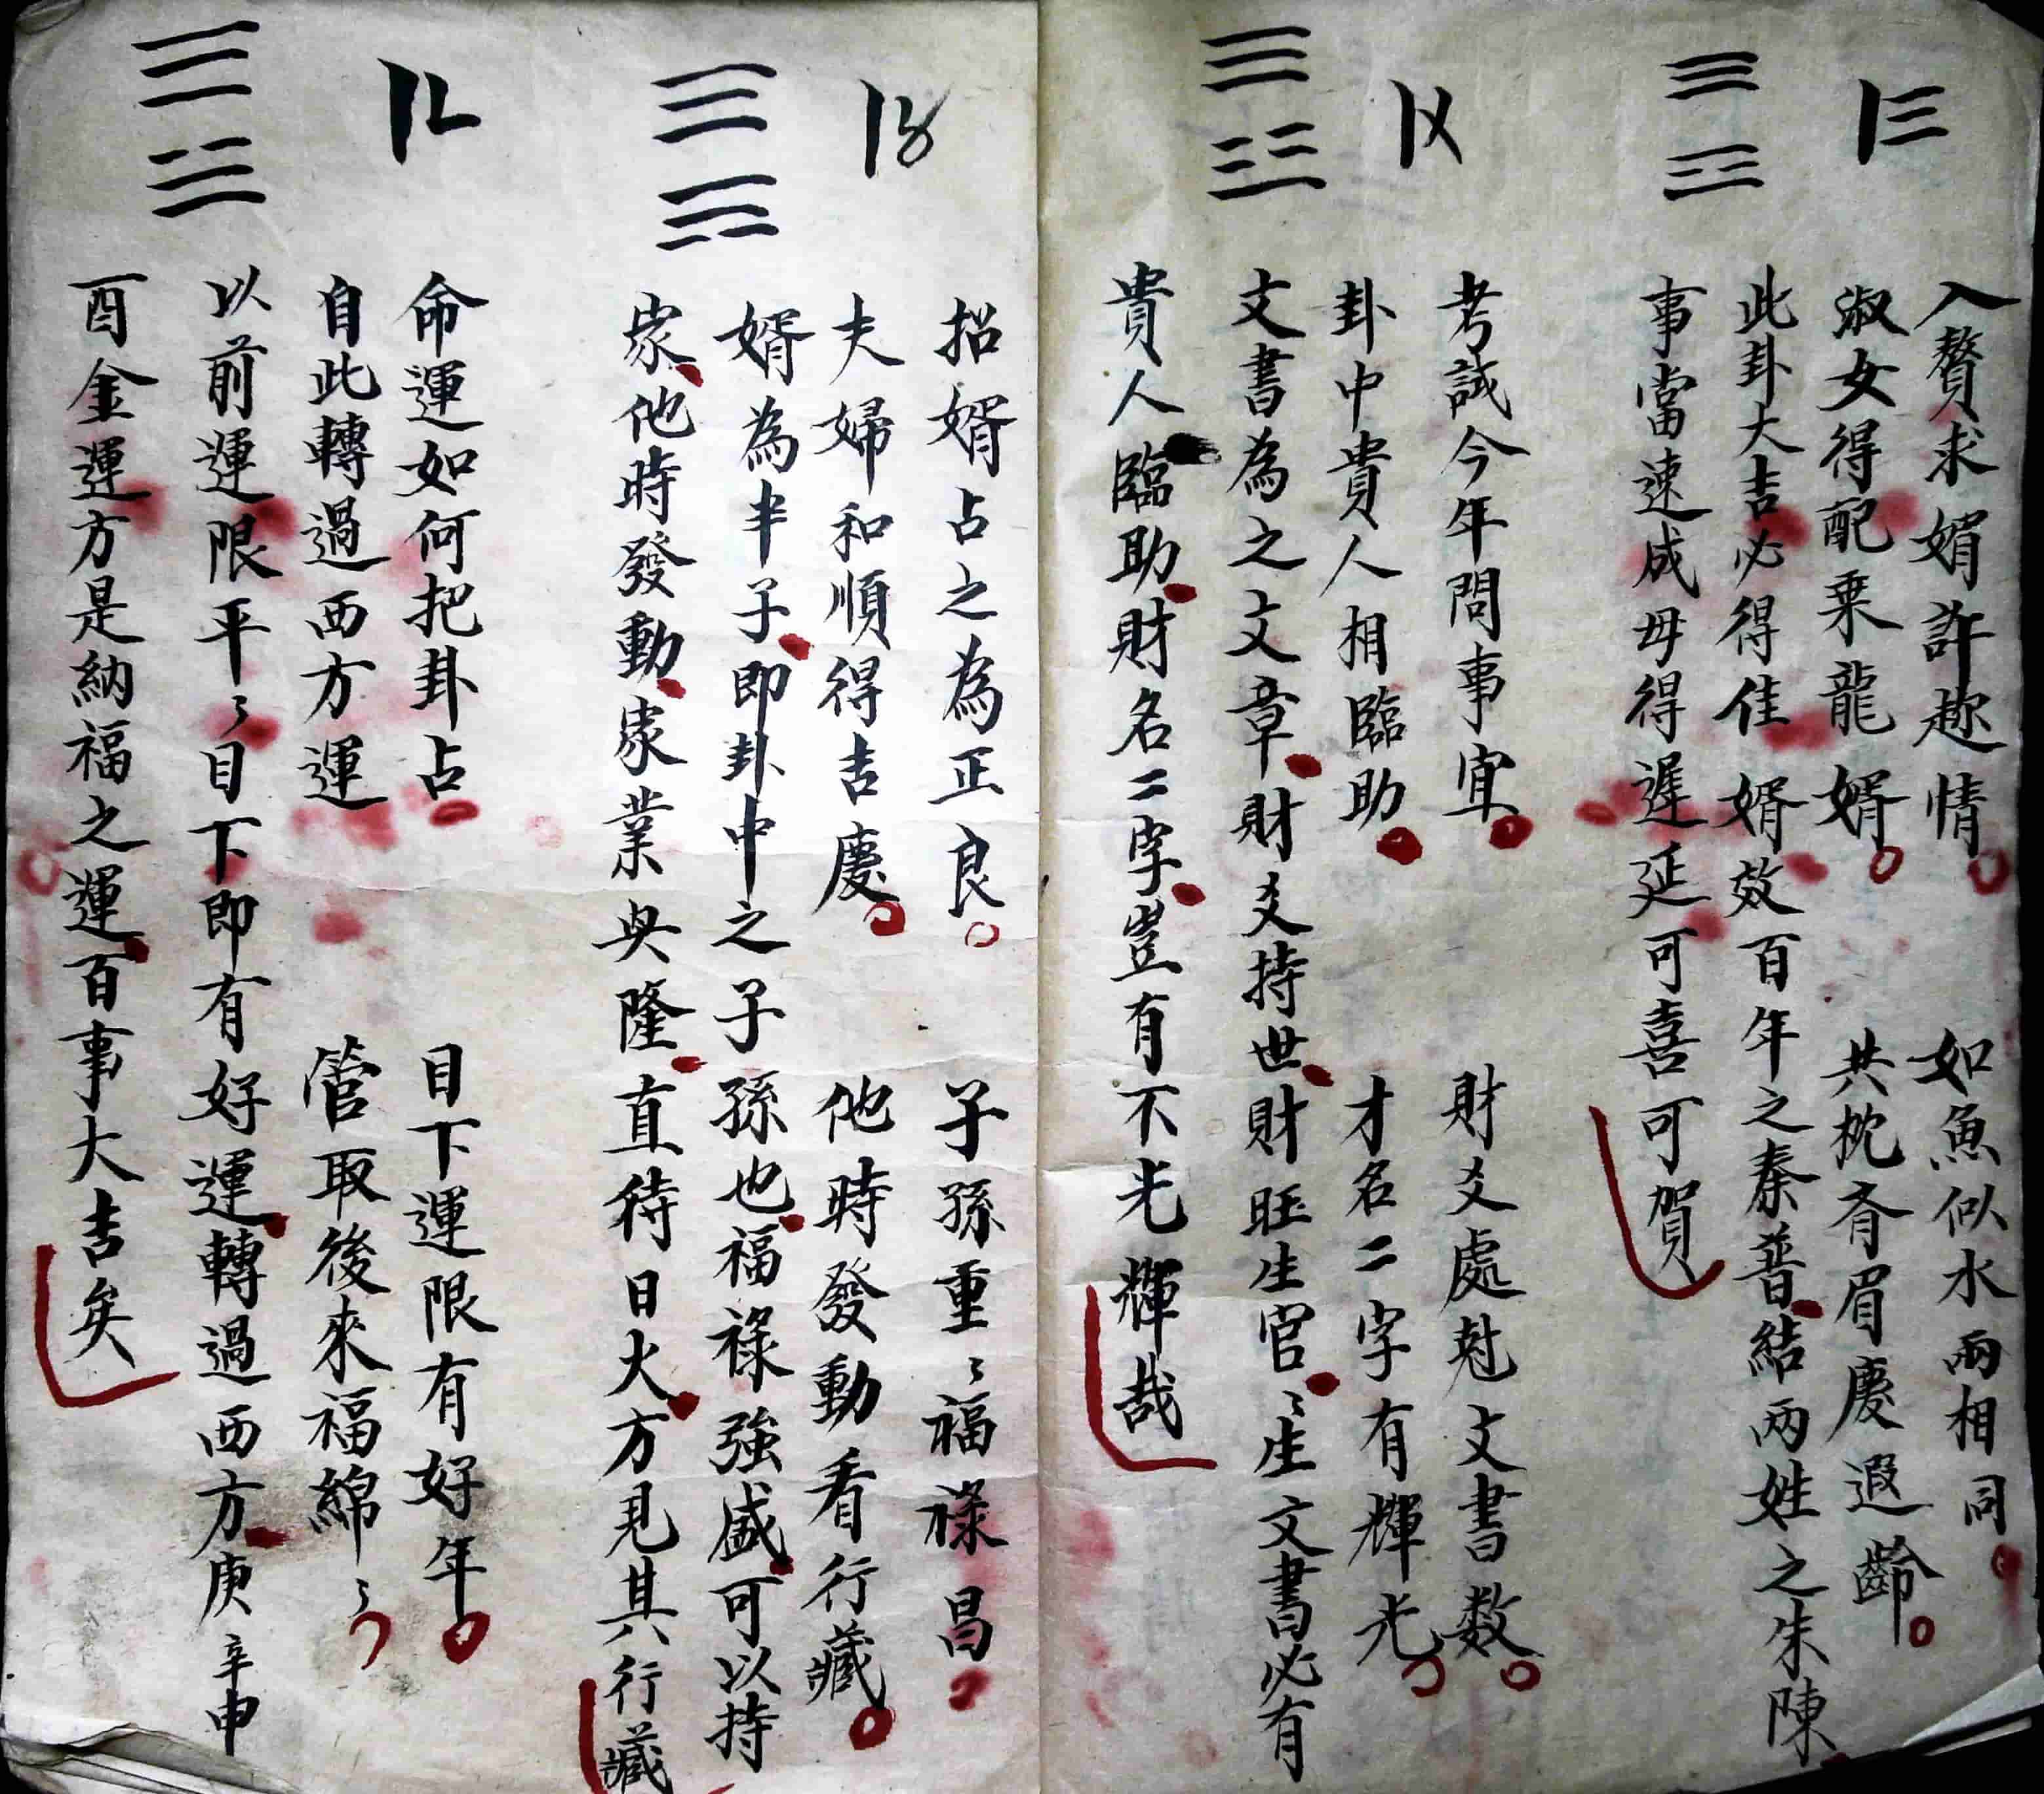 〡三
入贅求婿許趂情 如魚似水兩相同
淑女得配乘龍婿 共枕齊眉慶遐齡
此卦大吉必得佳婿效百年之秦普結兩姓之朱陳
事當速成毋得遲延可喜可賀
〡〤
考試今年問事宜 財爻處尅文書数
卦中貴人相臨助 才名二字有輝光
文書為之文章財爻持世財旺生官〻生文書必有
貴人臨助財名二字豈有不光輝哉
〡〥
招婿占之為正良 子孫重〻福祿昌
夫婦和順得吉慶 他時發動看行藏
婿為半子即卦中之子孫也福祿強盛可以持
家他時發動家業興隆直待日大方見其行藏
〡〦
命運如何把卦占 目下運限有好年
自此轉過西方運 管取後來福綿〻
以前運限平〻目下即有好運轉過西方庚辛申
酉金運方是納福之運百事大吉矣